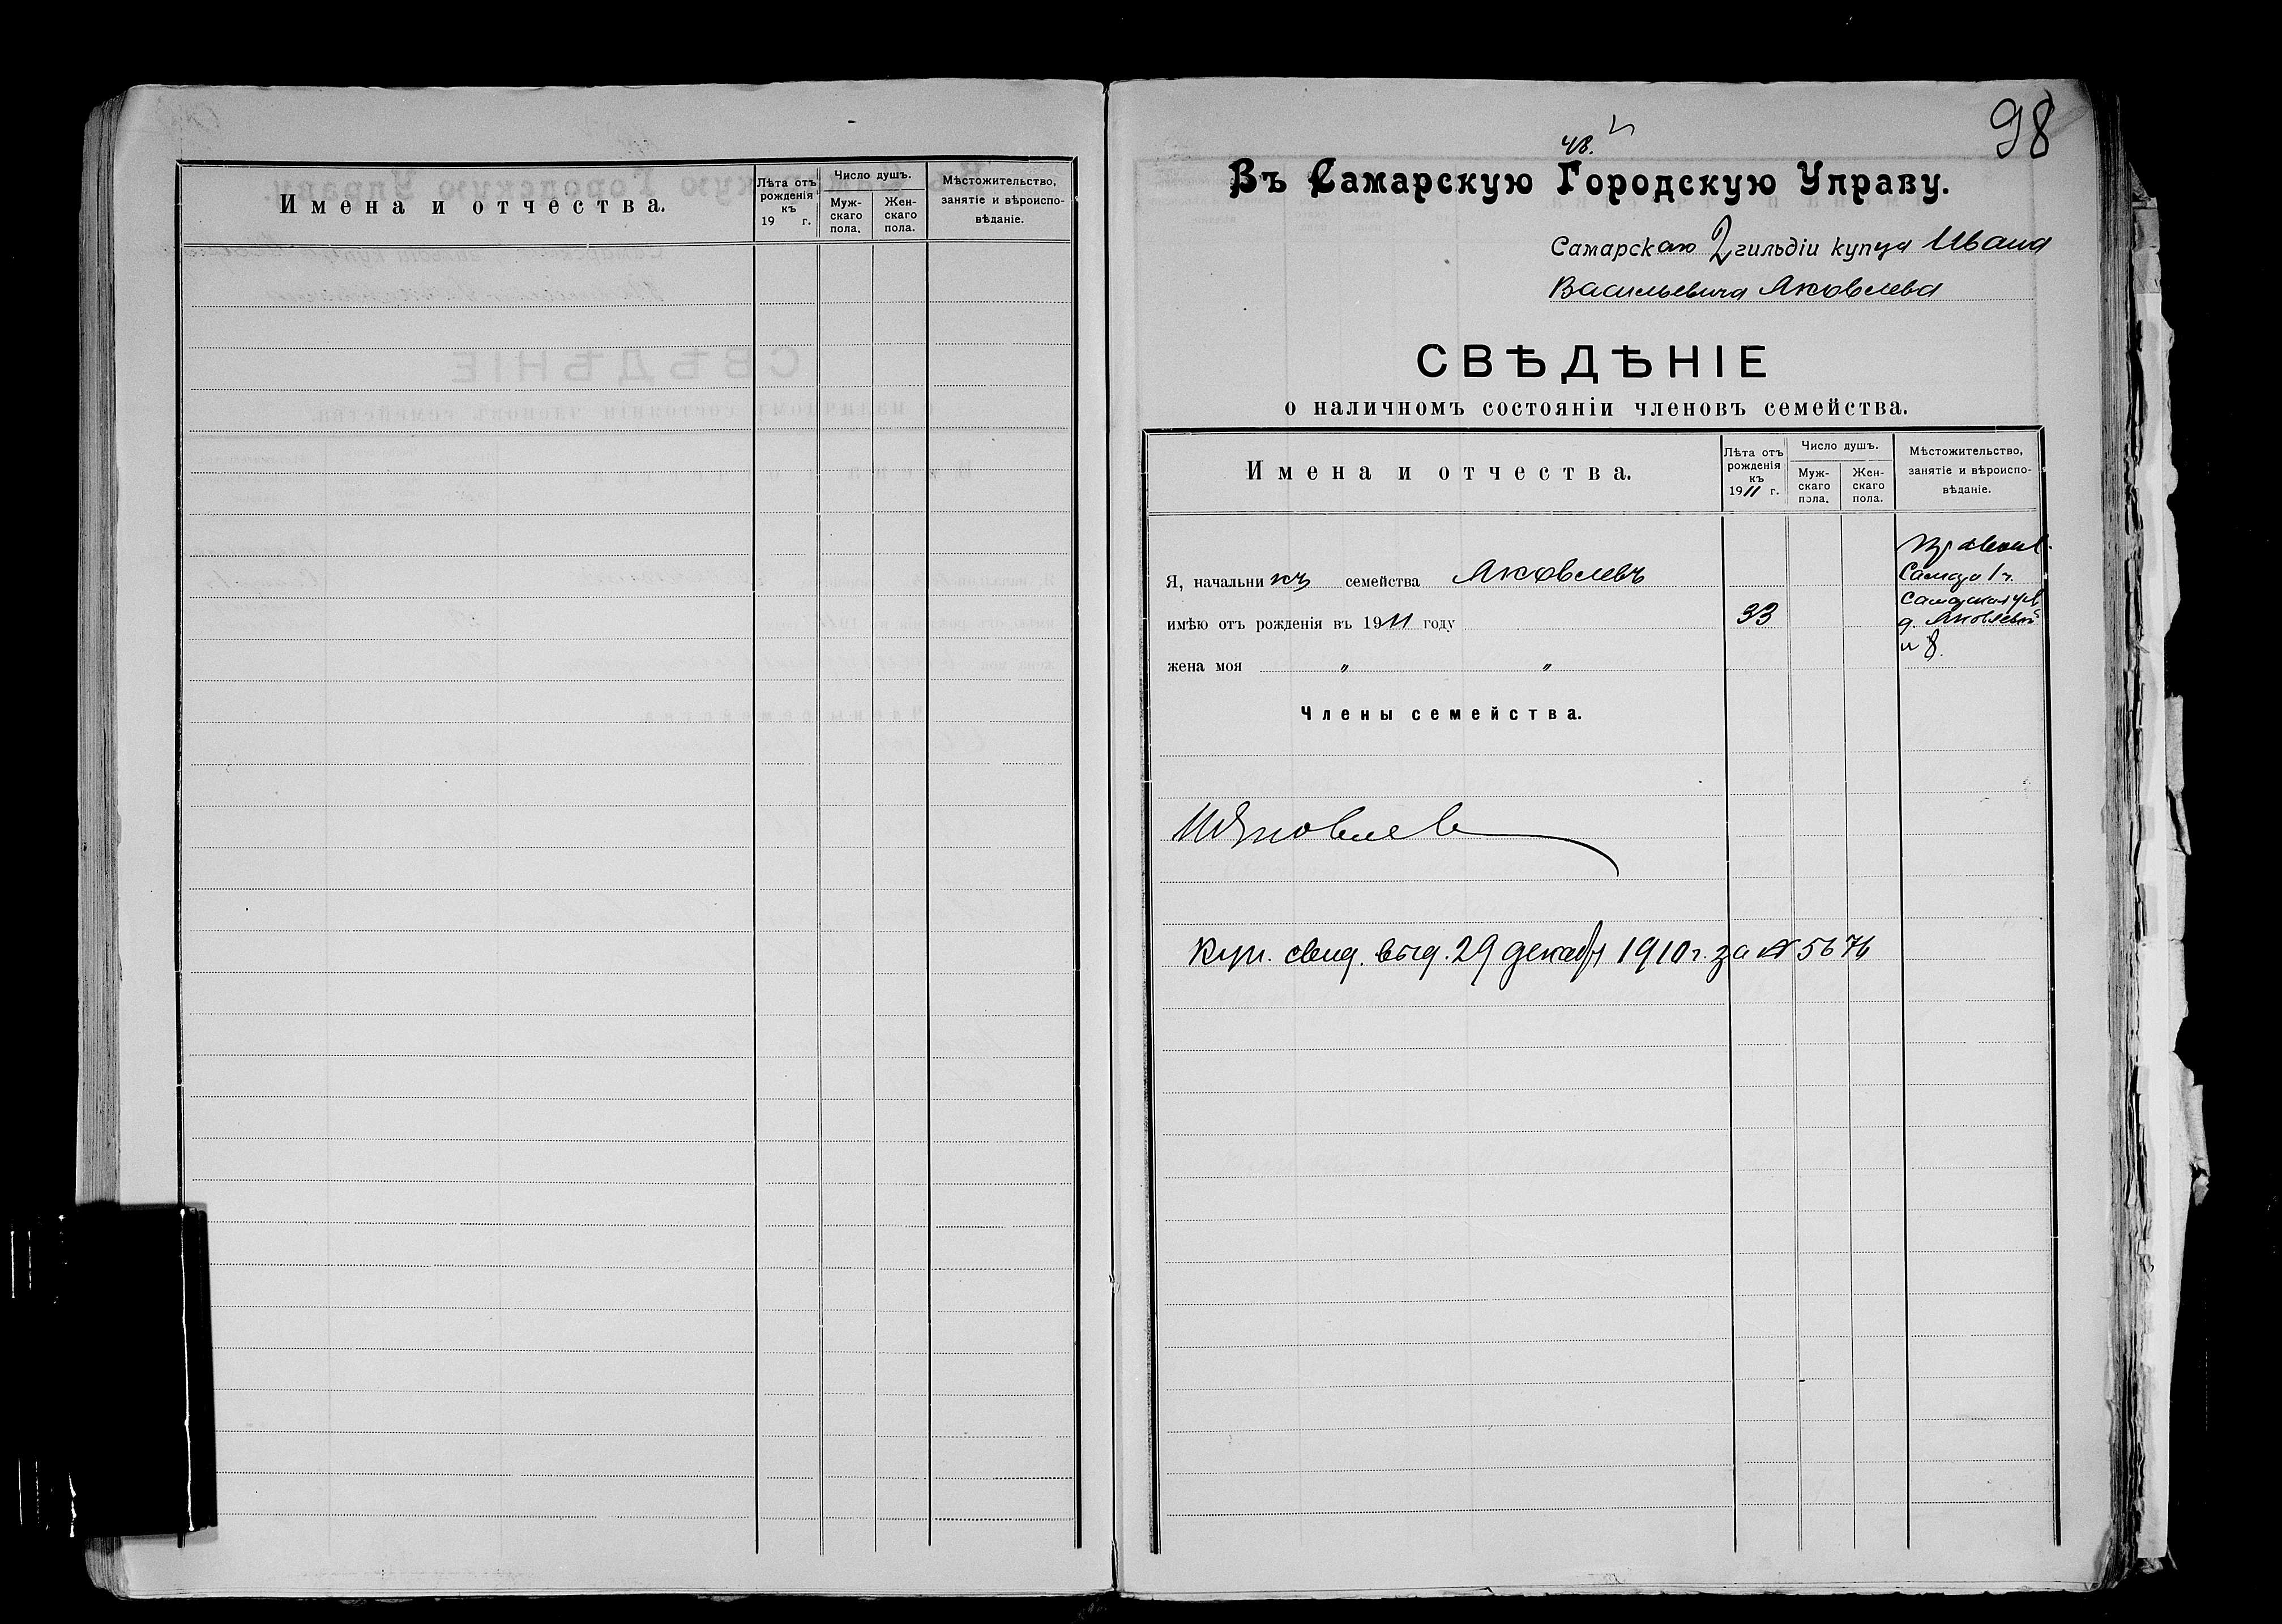 Имена и отчества.
Лѣта отъ рожденія къ 19 г.
Число душъ.
Муж-скаго пола.
Жен-скаго пола.
Мѣстожительство, занятіе и вѣроиспо-вѣданіе.
98
Въ Самарскую Городскую Управу.
Самарскаго 2 гильдіи купца Ивана
Васильевича Яковлева
СВѢДѢНІЕ
о наличномъ состояніи членовъ семейства.
Имена и отчества.
Лѣта отъ рожденія къ 1911 г.
Число душъ.
Муж-скаго пола.
Жен-скаго пола.
Мѣстожительство, занятіе и вѣроиспо-вѣданіе.
Я, начальникъ семейства Яковлевъ
имѣю отъ рожденія въ 1911 году 33
жена моя " "
Самара 1 ч.
Самарская ул.
д. Яковлевой
№ 8.
Члены семейства.
И Яковлев
Куп. свид. выд. 29 декабря 1910 г. за № 5676